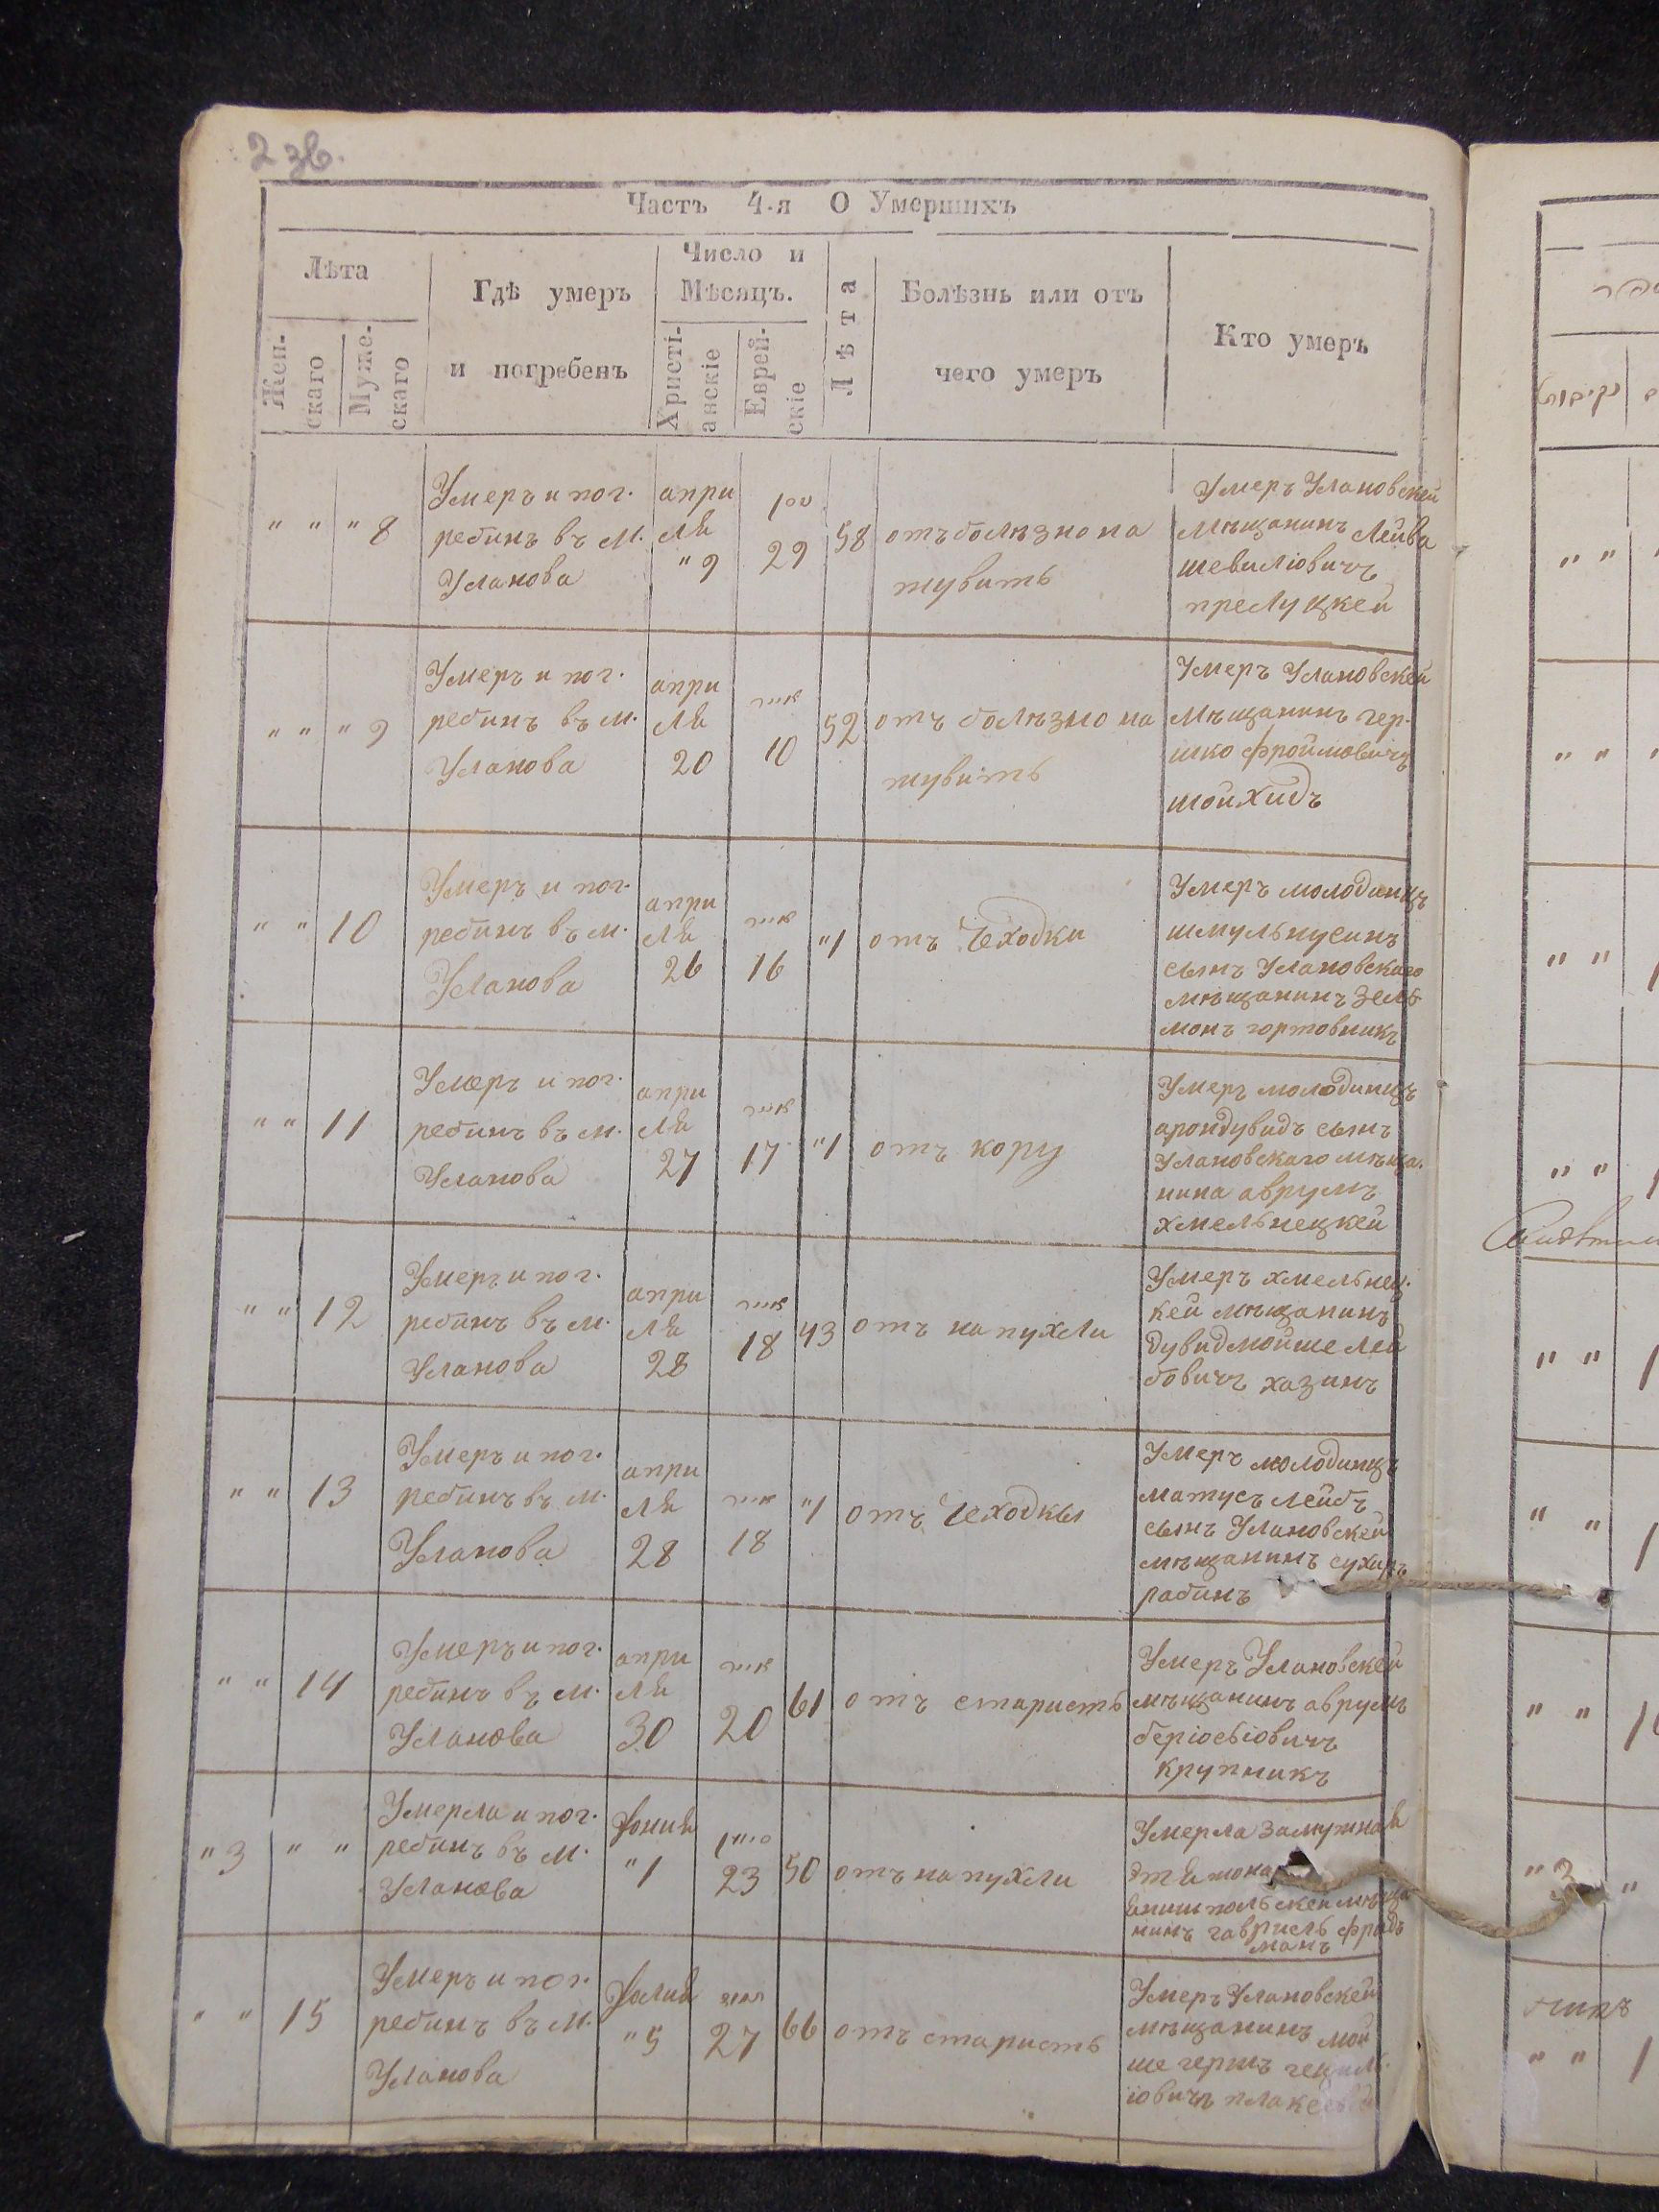 2 зв.
Часть 4-я О Умершихъ
Лѣта
Жен-
скаго
Муже-
скаго
Гдѣ умеръ
и погребенъ
Число и
Мѣсяцъ.
Христі-
анскіе
Еврей-
скіе
Лѣта
Болѣзнь или отъ
чего умеръ
Кто умеръ
" " " 8
Умеръ и пог.
ребинъ въ м.
Уланова
апри
ля
" 9
ניסן
29
58
отъ болѣзно на
жувить
Умеръ Улановскей
мѣщанинъ Лейва
шевиліовичъ
прелуцкей
" " " 9
Умеръ и пог.
ребинъ въ м.
Уланова
апри
ля
20
אייר
10
52
отъ болѣзно на
жувить
Умеръ Улановскей
мѣщанинъ гер-
шко фроймовичъ
шойхидъ
" " 10
Умеръ и пог.
ребинъ въ м.
Уланова
апри
ля
26
אייר
16
"1
отъ Чеходки
Умеръ молодинцъ
шмульнусинъ
сынъ Улановскаго
мѣщанинъ Зель
монъ гортовникъ
" " 11
Умеръ и пог.
ребинъ въ м.
Уланова
апри
ля
27
אייר
17
"1
отъ кору
Умеръ молодинцъ
арондувидъ сынъ
Улановскаго мѣща.
нина аврумъ
хмельнецкей
" " 12
Умеръ и пог.
ребинъ въ м.
Уланова
апри
ля
28
אייר
18
43
отъ напухли
Умеръ хмельнец.
кей мѣщанинъ
дувидмойше лей
бовичъ хазинъ
" " 13
Умеръ и пог.
ребинъ въ м.
Уланова
апри
ля
28
אייר
18
"1
отъ Чеходкы
Умеръ молодинцъ
матусъ лейбъ
сынъ Улановскей
мѣщанинъ сухиръ
рабинъ
" " 14
Умеръ и пог.
ребинъ въ м.
Уланова
апри
ля
30
אייר
20
61
отъ старисть
Умеръ Улановскей
мѣщанинъ аврумъ
беріосьіовичъ
крупникъ
" 3 " "
Умерла и пог.
ребинъ въ м.
Уланова
Юнія
" 1
סיון
23
50
отъ напухли
Умерла замужная
польскей мѣща
нинъ гавриель фрид
манъ
" " 15
Умеръ и пог.
ребинъ въ м.
Уланова
Юлия
" 5
תמוז
27
66
отъ старисть
Умеръ Улановскей
мѣщанинъ мой
ше гершъ гецил.
іовичъ